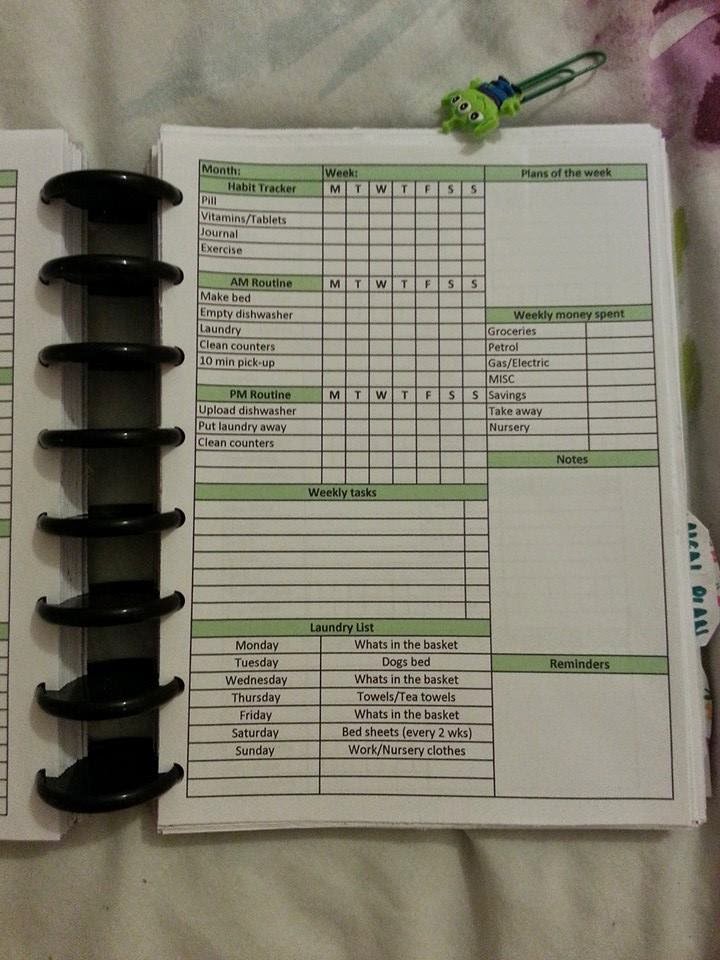 Month: Week:
Habit Tracker M T W T F S S
Pill
Vitamins/Tablets
Journal
Exercise
AM Routine M T W T F S S
Make bed
Empty dishwasher
Laundry
Clean counters
10 min pick-up
PM Routine M T W T F S S
Upload dishwasher
Put laundry away
Clean counters
Weekly tasks
Laundry List
Monday Whats in the basket
Tuesday Dogs bed
Wednesday Whats in the basket
Thursday Towels/Tea towels
Friday Whats in the basket
Saturday Bed sheets (every 2 wks)
Sunday Work/Nursery clothes
Plans of the week
Weekly money spent
Groceries
Petrol
Gas/Electric
MISC
Savings
Take away
Nursery
Notes
Reminders
MEAL PLAN